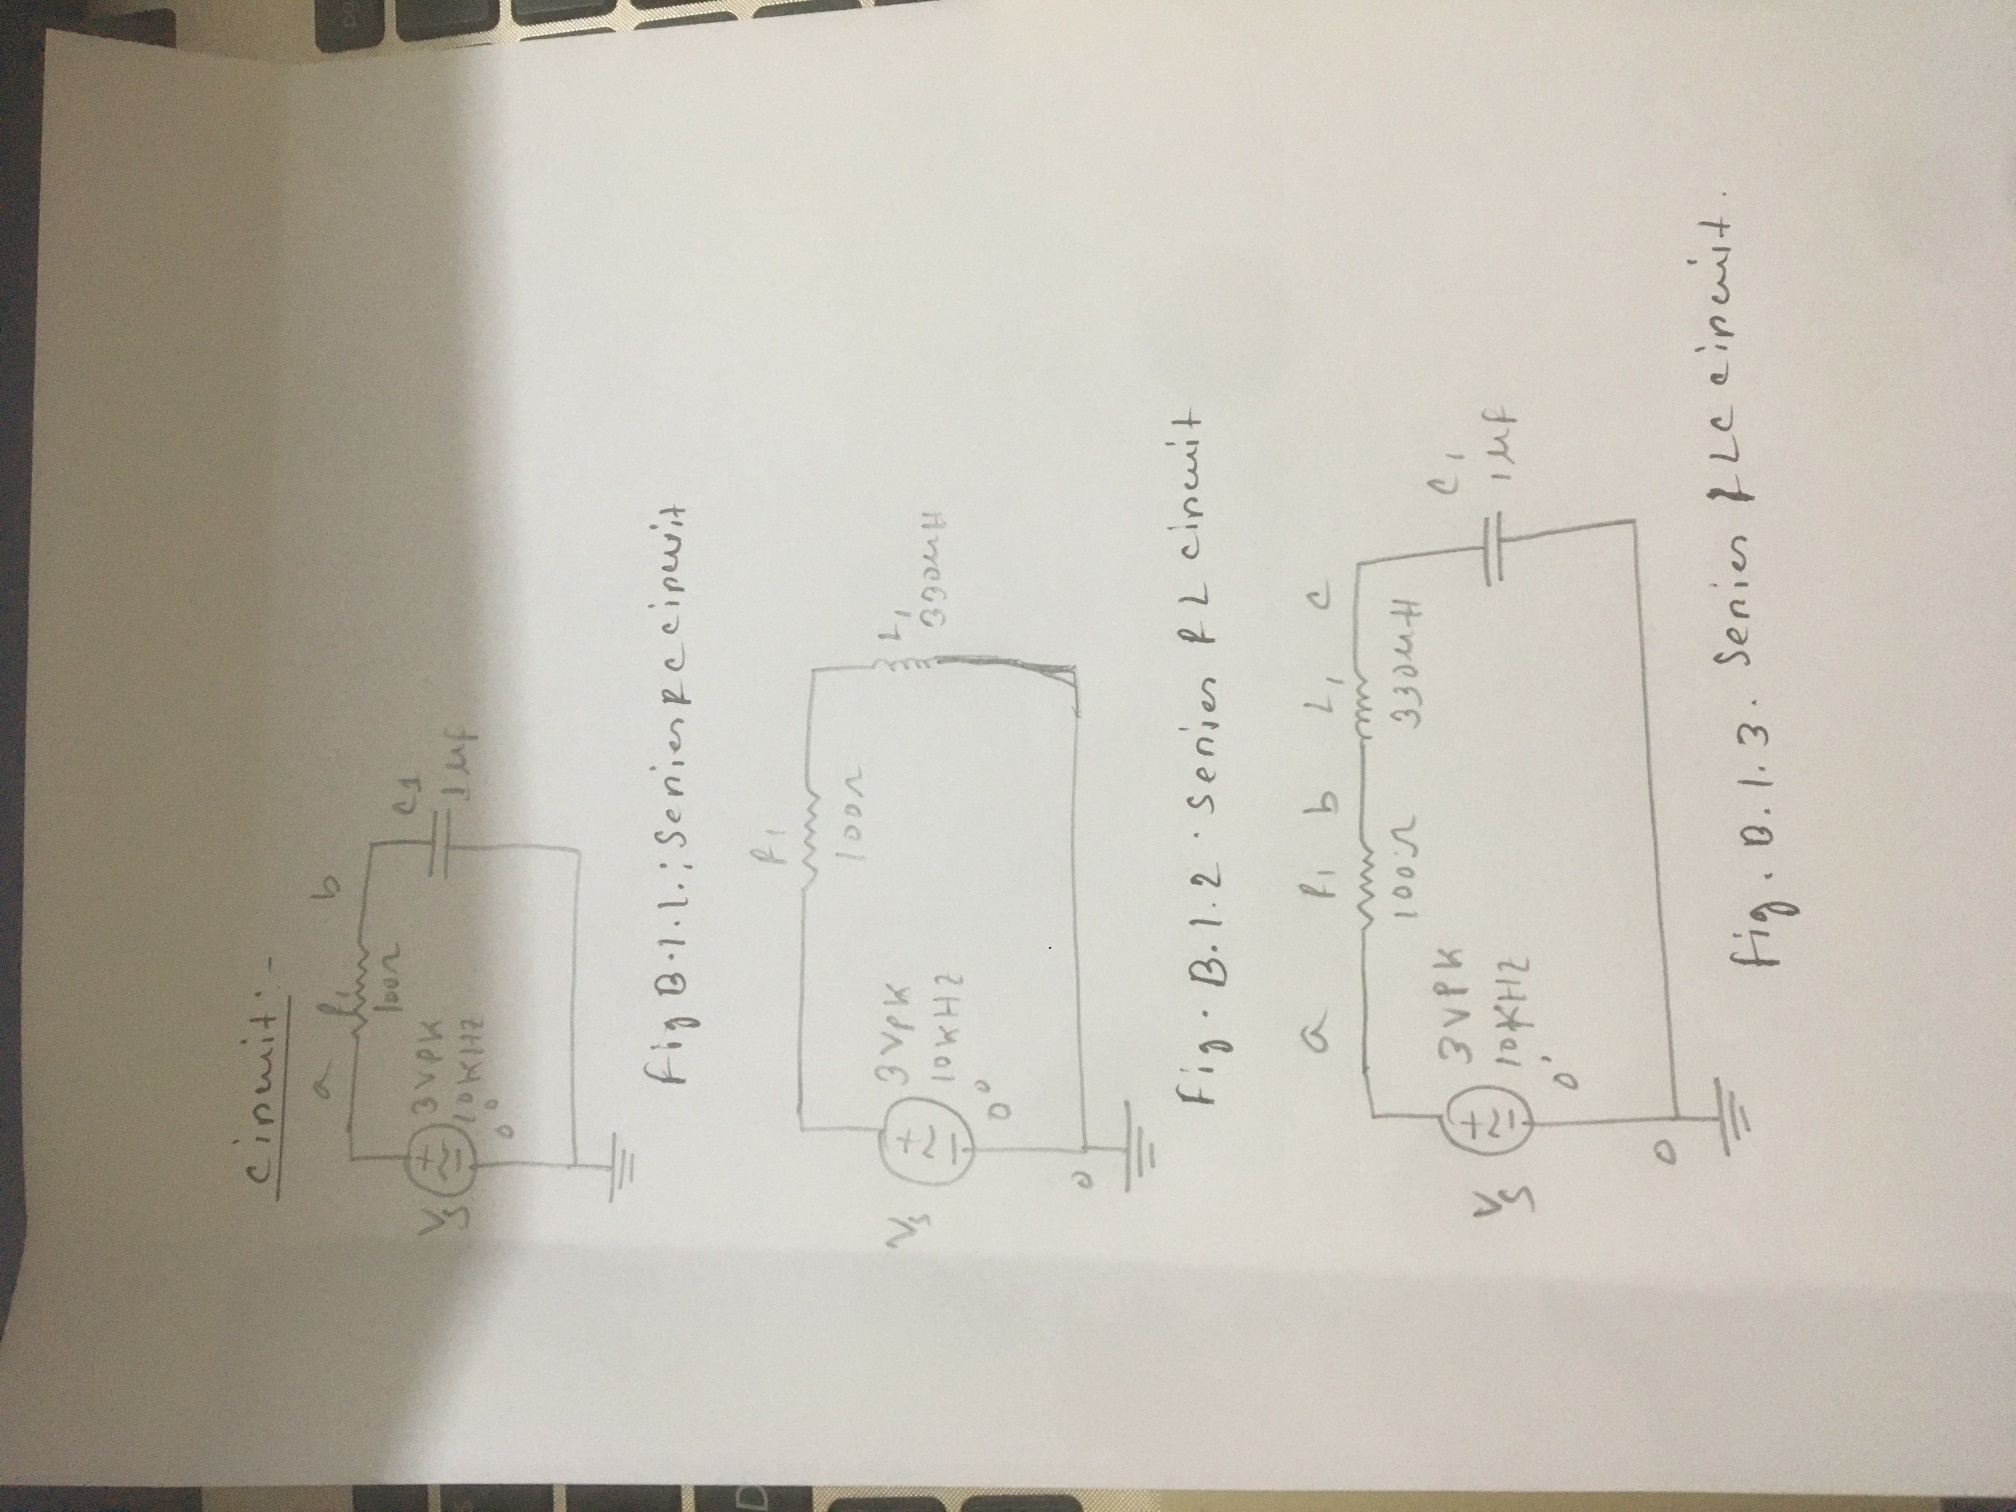 Circuit:-
a R1 b
100Ω
C1
1μf
Vs
3VPK
10KHz
0°
Fig B.1.1.: Series RC circuit
R1
100Ω
L1
330uH
Vs
3VPK
10KHz
0°
0
Fig. B.1.2. Series RL circuit
a R1 b L1 c
100Ω 330uH
C1
1μf
Vs
3VPK
10KHz
0°
0
Fig. B.1.3. Series RLC circuit.
D